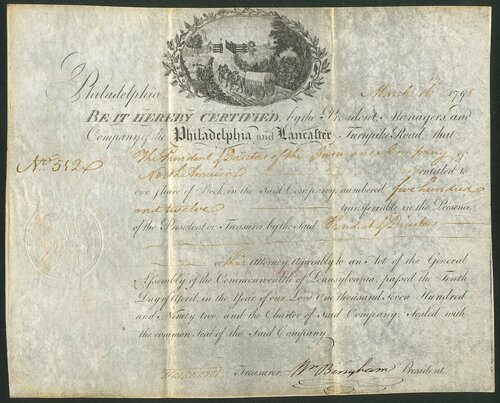 Philadelphia March 16 1795
BE IT HEREBY CERTIFIED, by the President, Managers and
Company, of the Philadelphia and Lancaster Turnpike Road, that
The President & Directors of the Insurance Company of
North America entitled to
No. 512
one Share of Stock in the Said Company, numbered five hundred
and twelve transferable in the Presence
of the President or Treasurer by the Said President & Directors
or their Attorney Agreeably to an Act of the General
Assembly of the Commonwealth of Pennsylvania, passed the Ninth
Day of April, in the Year of our Lord One thousand Seven Hundred
and Ninety two, and the Charter of Said Company, Sealed with
the common Seal of the Said Company
Treasurer Wm Bingham President